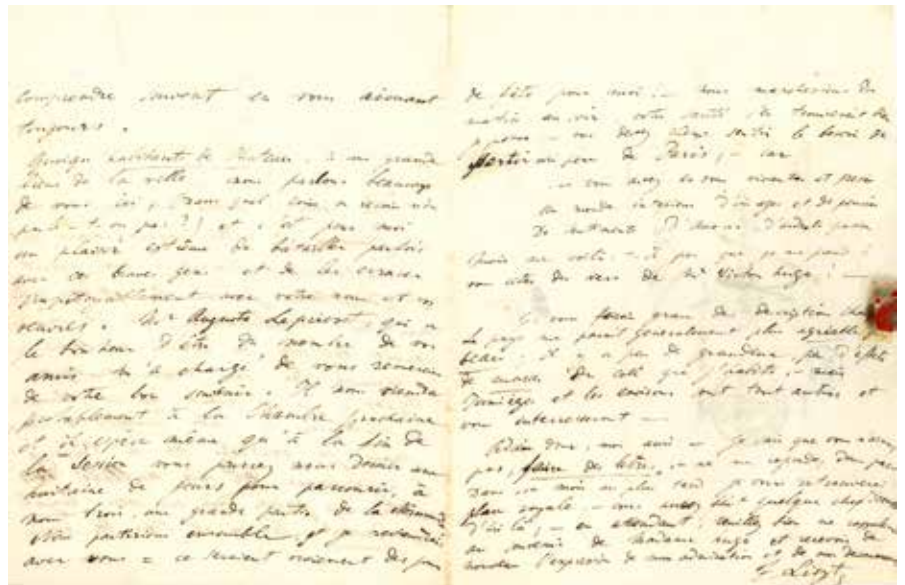 comprendre souvent en vous aimant
toujours.
Quoique habitant le château, à une grande
lieue de la ville nous parlons beaucoup
de vous ici, (dans quel coin du
parle-t-on pas?) et c'est pour moi
un plaisir extrême de batailler parfois
avec ces braves gens et de les écraser
avec votre nom et vos
œuvres. Mr Auguste Leprévost, qui a
le bonheur d'être du nombre de vos
amis m'a chargé de vous remercier
de votre bon souvenir. Il nous viendra
probablement à la Chambre prochaine
et il espère même qu'à la fin de
la Session vous pourrez nous donner une
huitaine de jours pour parcourir, à
nous trois, une grande partie de la
Nous partirions ensemble et je reviendrais
avec vous = ce seraient vraiment des jours
de fête pour moi; — nous
matin au soir votre santé
— vous devez bien sentir le besoin de
sortir un peu de Paris; — car
vous avez en vous vivante et
un monde intérieur d'images et de pensées
De sentiments, d'amour, d'ardente
voilà que je me prend à
vous citer des vers de Mr Victor Hugo! —
Si vous faire grace de description
Le pays me parait généralement plus agréable que
beau. Il y a peu de grandeur, peu d'effets
de masse du coté que j'habite; mais
et les environs sont tout autres et
vous intéresseront —
Adieu donc, mon ami — Je sais que vous n'aimez
pas, faire des lettres,
Dans un mois au plus tard je vous retrouverai
place royale, — vous aurez fini quelque chose
d'ici là; — en attendant, veuillez bien me rappeler
au souvenir de Madame Hugo et recevoir de
nouveau l'expression de mon admiration et de mon
F. Liszt